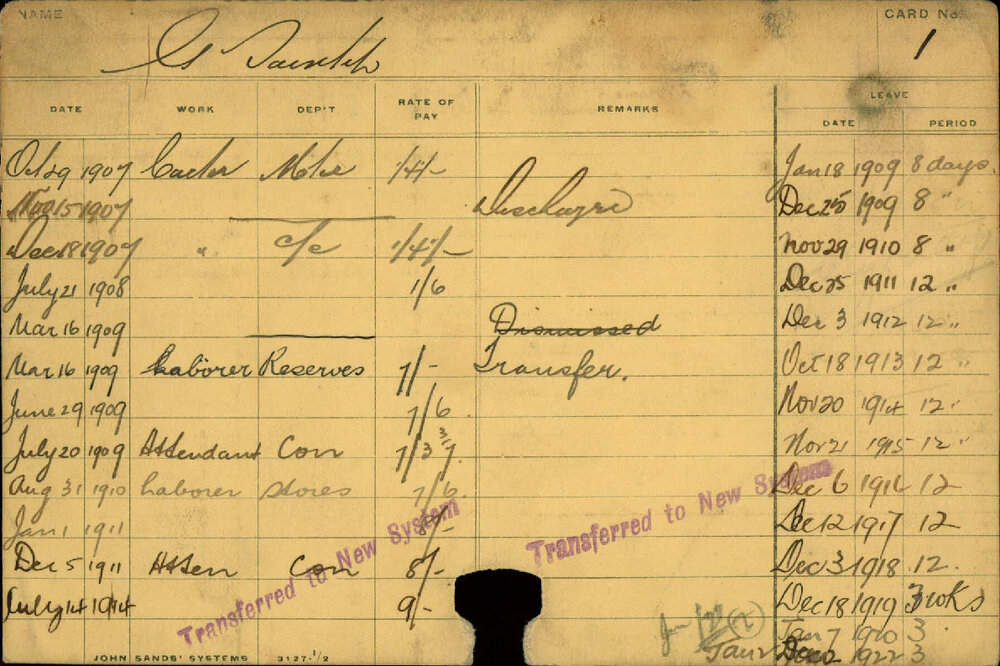 NAME
CARD No. 1
G
DATE WORK DEP'T RATE OF PAY REMARKS LEAVE
DATE PERIOD
Oct 29 1907 Carter 1/4/- Jan 18 1909 8 days.
Nov 15 1907 Discharge Dec 25 1909 8 "
Dec 18 1907 " c/e 1/4/- Nov 29 1910 8 "
July 21 1908 1/6 Dec 25 1911 12 "
Mar 16 1909 Dismissed Dec 3 1912 12 "
Mar 16 1909 Laborer Reserves 7/- Transfer. Oct 18 1913 12 "
June 29 1909 7/6 Nov 20 1914 12 "
July 20 1909 Attendant Con 7/3 Nov 21 1915 12 "
Aug 31 1910 Laborer Stores 7/6 Dec 6 1916 12
Jan 1 1911 8/- Dec 12 1917 12
Dec 5 1911 Atten Con 8/- Dec 3 1918 12.
July 14 1914 9/- Dec 18 1919 3 wks
Jan 7 1920 3
1922 3
Transferred to New System
Transferred to New System
JOHN SANDS' SYSTEMS 3127-1/2